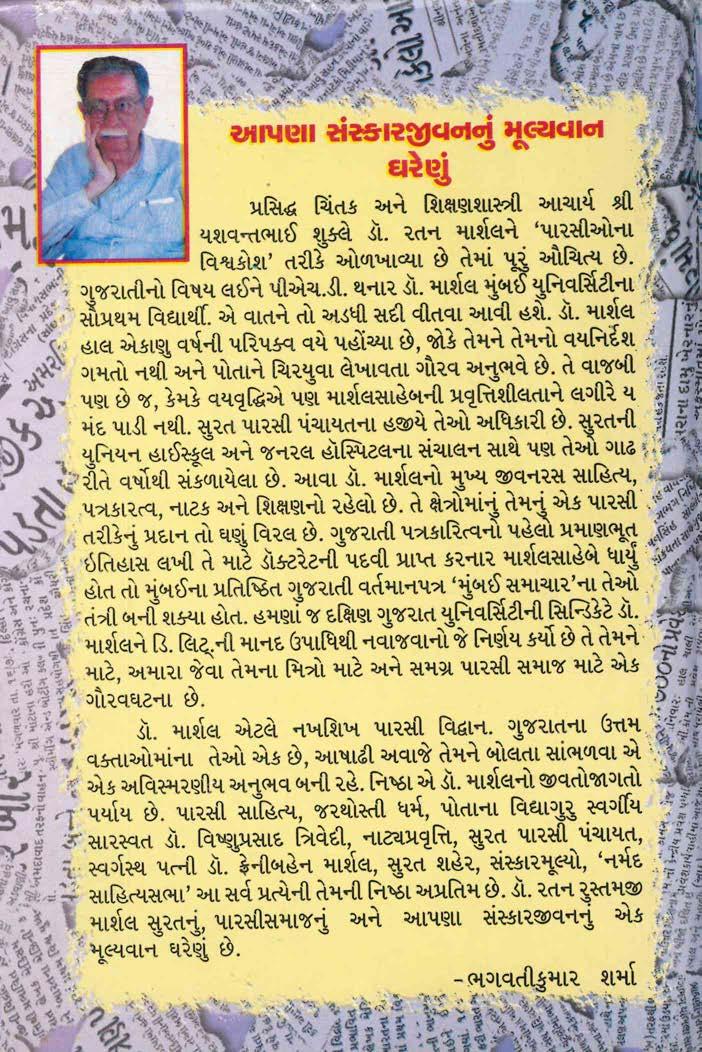 આપણા સંસ્કારજીવનનું મૂલ્યવાન
ઘરેણું
પ્રસિદ્ધ ચિંતક અને શિક્ષણશાસ્ત્રી આચાર્ય શ્રી
યશવન્તભાઈ શુક્લે ડૉ. રતન માર્શલને ‘પારસીઓના
વિશ્વકોશ’ તરીકે ઓળખાવ્યા છે તેમાં પૂરું ઔચિત્ય છે.
ગુજરાતીનો વિષય લઈને પીએચ.ડી. થનાર ડૉ. માર્શલ મુંબઈ યુનિવર્સિટીના
સૌપ્રથમ વિદ્યાર્થી. એ વાતને તો અડધી સદી વીતવા આવી હશે. ડૉ. માર્શલ
હાલ એકાણુ વર્ષની પરિપક્વ વયે પહોંચ્યા છે, જોકે તેમને તેમનો વયનિર્દેશ
ગમતો નથી અને પોતાને ચિરયુવા લેખાવતા ગૌરવ અનુભવે છે. તે વાજબી
પણ છે જ, કેમકે વયવૃદ્ધિએ પણ માર્શલસાહેબની પ્રવૃત્તિશીલતાને લગીરે ય
મંદ પાડી નથી. સુરત પારસી પંચાયતના હજીયે તેઓ અધિકારી છે. સુરતની
યુનિયન હાઈસ્કૂલ અને જનરલ હૉસ્પિટલના સંચાલન સાથે પણ તેઓ ગાઢ
રીતે વર્ષોથી સંકળાયેલા છે. આવા ડૉ. માર્શલનો મુખ્ય જીવનરસ સાહિત્ય,
પત્રકારત્વ, નાટક અને શિક્ષણનો રહેલો છે. તે ક્ષેત્રોમાંનું તેમનું એક પારસી
તરીકેનું પ્રદાન તો ઘણું વિરલ છે. ગુજરાતી પત્રકારિત્વનો પહેલો પ્રમાણભૂત
ઇતિહાસ લખી તે માટે ડૉક્ટરેટની પદવી પ્રાપ્ત કરનાર માર્શલસાહેબે ધાર્યું
હોત તો મુંબઈના પ્રતિષ્ઠિત ગુજરાતી વર્તમાનપત્ર ‘મુંબઈ સમાચાર’ના તેઓ
તંત્રી બની શક્યા હોત. હમણાં જ દક્ષિણ ગુજરાત યુનિવર્સિટીની સિન્ડિકેટે ડૉ.
માર્શલને ડિ. લિટ્.ની માનદ ઉપાધિથી નવાજવાનો જે નિર્ણય કર્યો છે તે તેમને
માટે, અમારા જેવા તેમના મિત્રો માટે અને સમગ્ર પારસી સમાજ માટે એક
ગૌરવઘટના છે.
ડૉ. માર્શલ એટલે નખશિખ પારસી વિદ્વાન. ગુજરાતના ઉત્તમ
વક્તાઓમાંના તેઓ એક છે, આષાઢી અવાજે તેમને બોલતા સાંભળવા એ
એક અવિસ્મરણીય અનુભવ બની રહે. નિષ્ઠા એ ડૉ. માર્શલનો જીવતોજાગતો
પર્યાય છે. પારસી સાહિત્ય, જરથોસ્તી ધર્મ, પોતાના વિદ્યાગુરુ સ્વર્ગીય
સારસ્વત ડૉ. વિષ્ણુપ્રસાદ ત્રિવેદી, નાટ્યપ્રવૃત્તિ, સુરત પારસી પંચાયત,
સ્વર્ગસ્થ પત્ની ડૉ. ફ્રેનીબહેન માર્શલ, સુરત શહેર, સંસ્કારમૂલ્યો, ‘નર્મદ
સાહિત્યસભા’ આ સર્વ પ્રત્યેની તેમની નિષ્ઠા અપ્રતિમ છે. ડૉ. રતન રુસ્તમજી
માર્શલ સુરતનું, પારસીસમાજનું અને આપણા સંસ્કારજીવનનું એક
મૂલ્યવાન ઘરેણું છે.
-ભગવતીકુમાર શર્મા